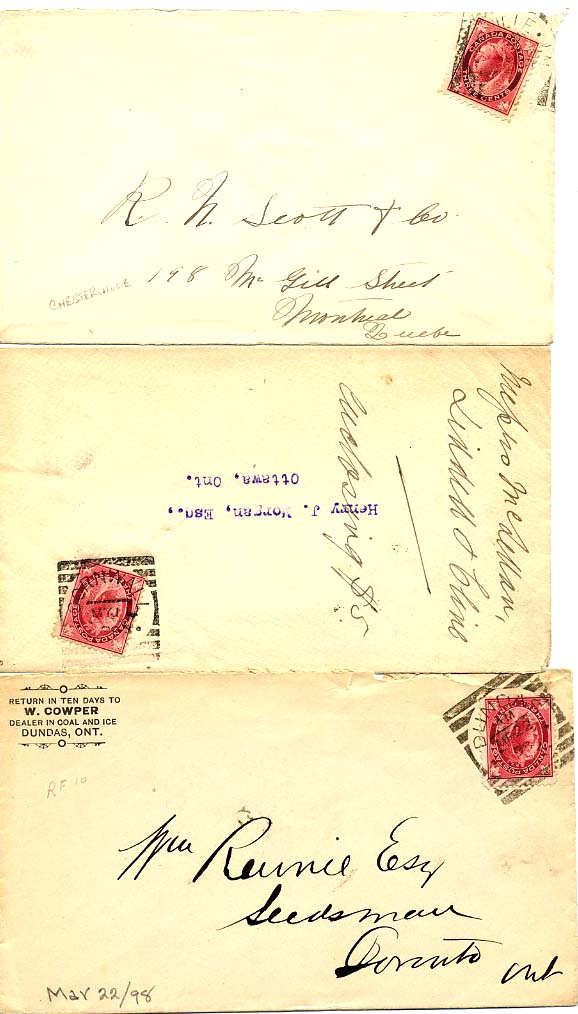 CANADA POSTAGE
THREE CENTS
R. N. Scott & Co.
198 McGill Street
Montreal
Quebec
CHESTERVILLE
McLennan,
Liddell & Cline
enclosing $5
Henry J. Morgan, Esq.,
Ottawa, Ont.
CANADA POSTAGE
RETURN IN TEN DAYS TO
W. COWPER
DEALER IN COAL AND ICE
DUNDAS, ONT.
CANADA POSTAGE
RF 10
Wm Rennie Esq
Seedsman
Toronto
Ont
Mar 22/98